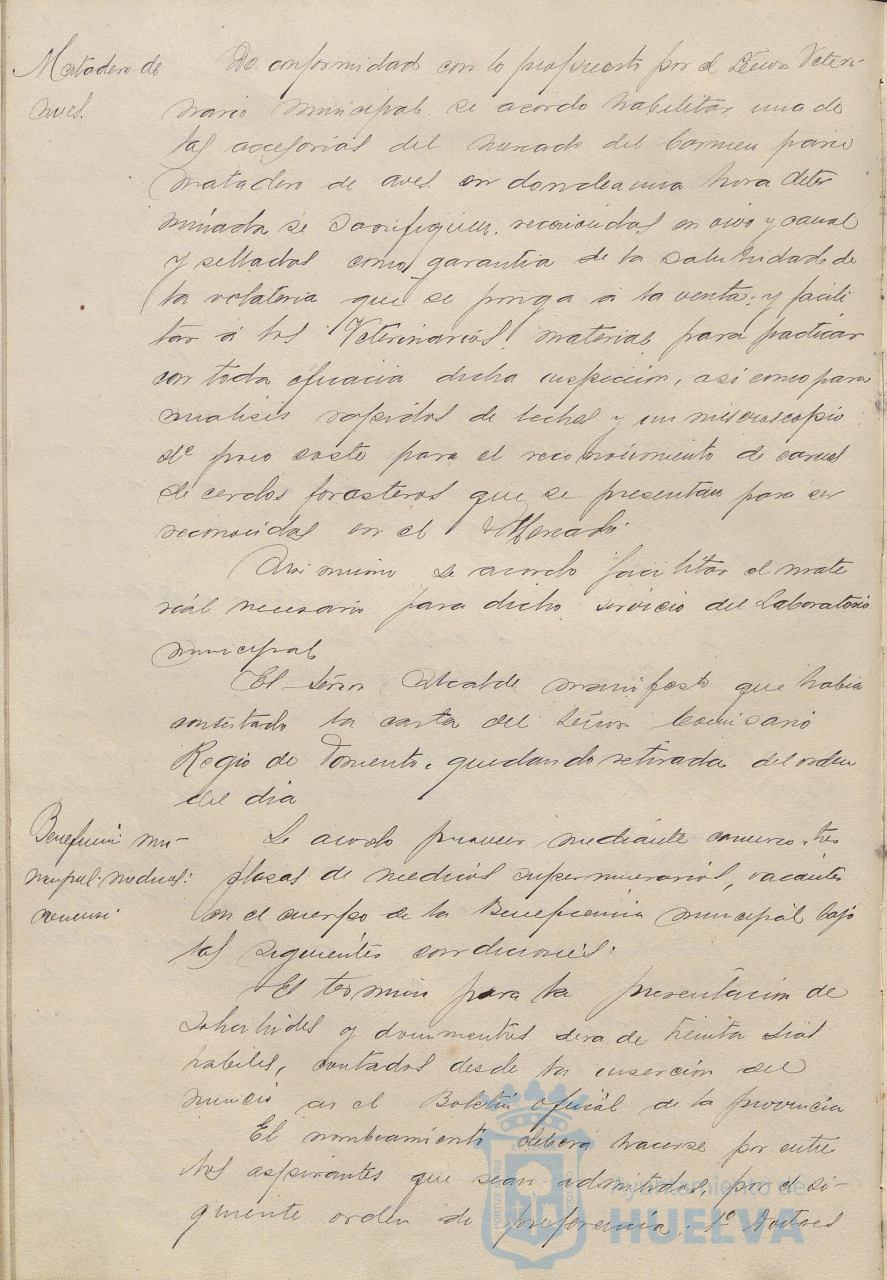 Matadero de
aves.
De conformidad con lo propuesto por el Señor Veteri-
nario municipal se acordo habilitar una de
las accesorias del mercado del Carmen para
matadero de aves en donde a una hora deter
minada se sacrifiquen, reconocidas en vivo y canal
y selladas como garantia de la salubridad de
la volateria que se ponga a la venta; y facili
tar a los Veterinarios material para practicar
con toda eficacia dicha inspección, asi como para
analisis rapidos de leches y un microscopio
de poco coste para el reconocimiento de carnes
de cerdos forasteros que se presentan para ser
reconocidas en el Mercado
Asi mismo se acordo facilitar el mate
rial necesario para dicho servicio del Laboratorio
municipal
El Señor Alcalde manifesto que habia
contestado la carta del Señor Comisario
Regio de Fomento, quedando retirada del orden
del dia
Benefcen mu-
nicipal. medicos:
Se acordo proveer mediante concurso, tres
plazas de medicos supernumerarios, vacantes
en el cuerpo de la Beneficencia municipal bajo
las siguientes condiciones:
El termino para la presentación de
solicitudes y documentos sera de treinta dias
habiles, contados desde la inserción del
anuncio en el Boletin oficial de la provincia
El nombramiento debera hacerse por entre
los aspirantes que sean admitidos, por el si-
guiente orden de preferencia. 1º Doctores
Ayuntamiento de
HUELVA